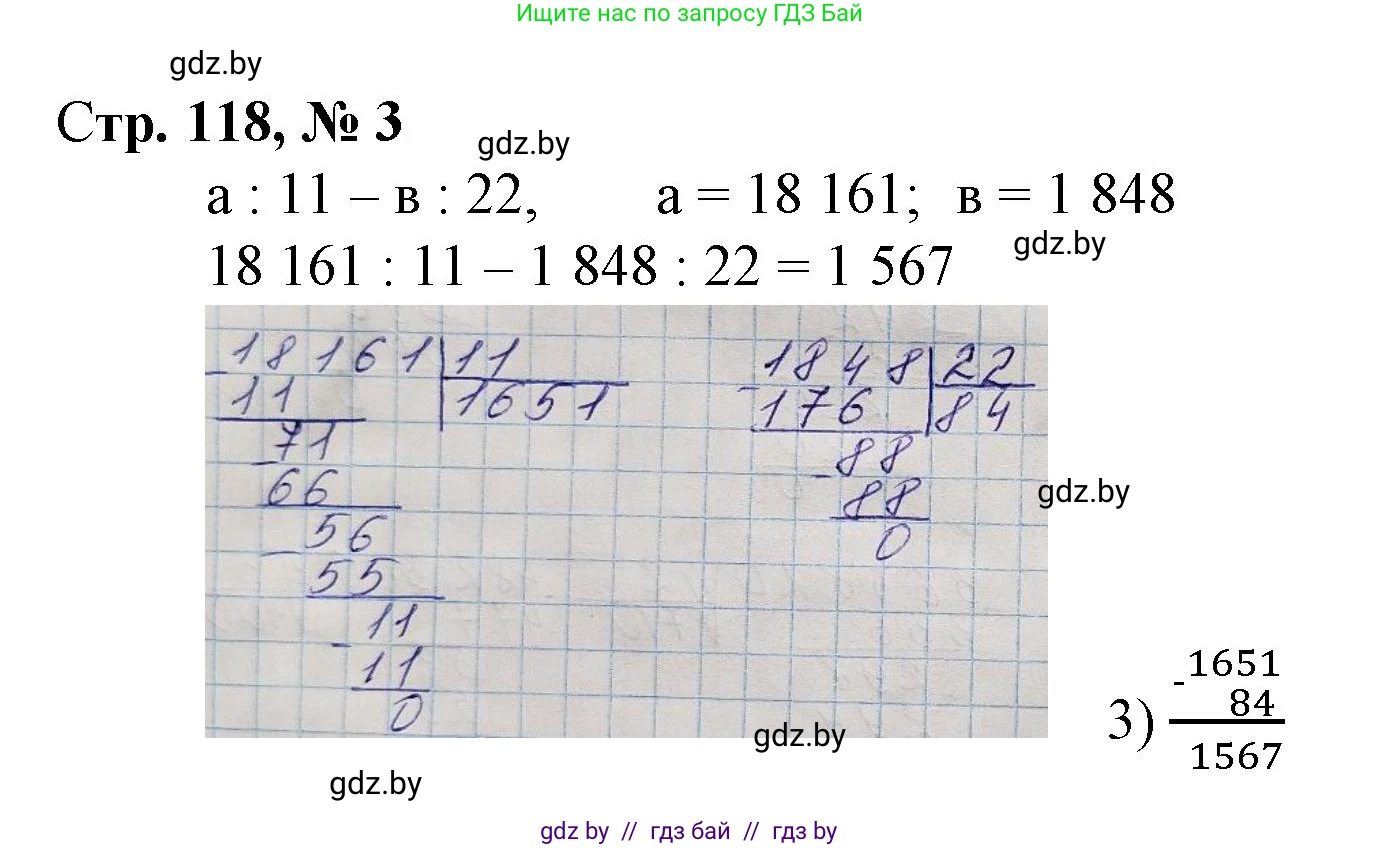 Ищите нас по запросу ГДЗ Бай
gdz.by
Стр. 118, № 3
gdz.by
а : 11 – в : 22, а = 18 161; в = 1 848
gdz.by
18 161 : 11 – 1 848 : 22 = 1 567
18161 11
- 11 1651
71
- 66
56
- 55
11
- 11
0
1848 22
- 176 84
88
- 88
0
gdz.by
3) - 1651
84
1567
gdz.by
gdz.by
gdz by // гдз бай // гдз by